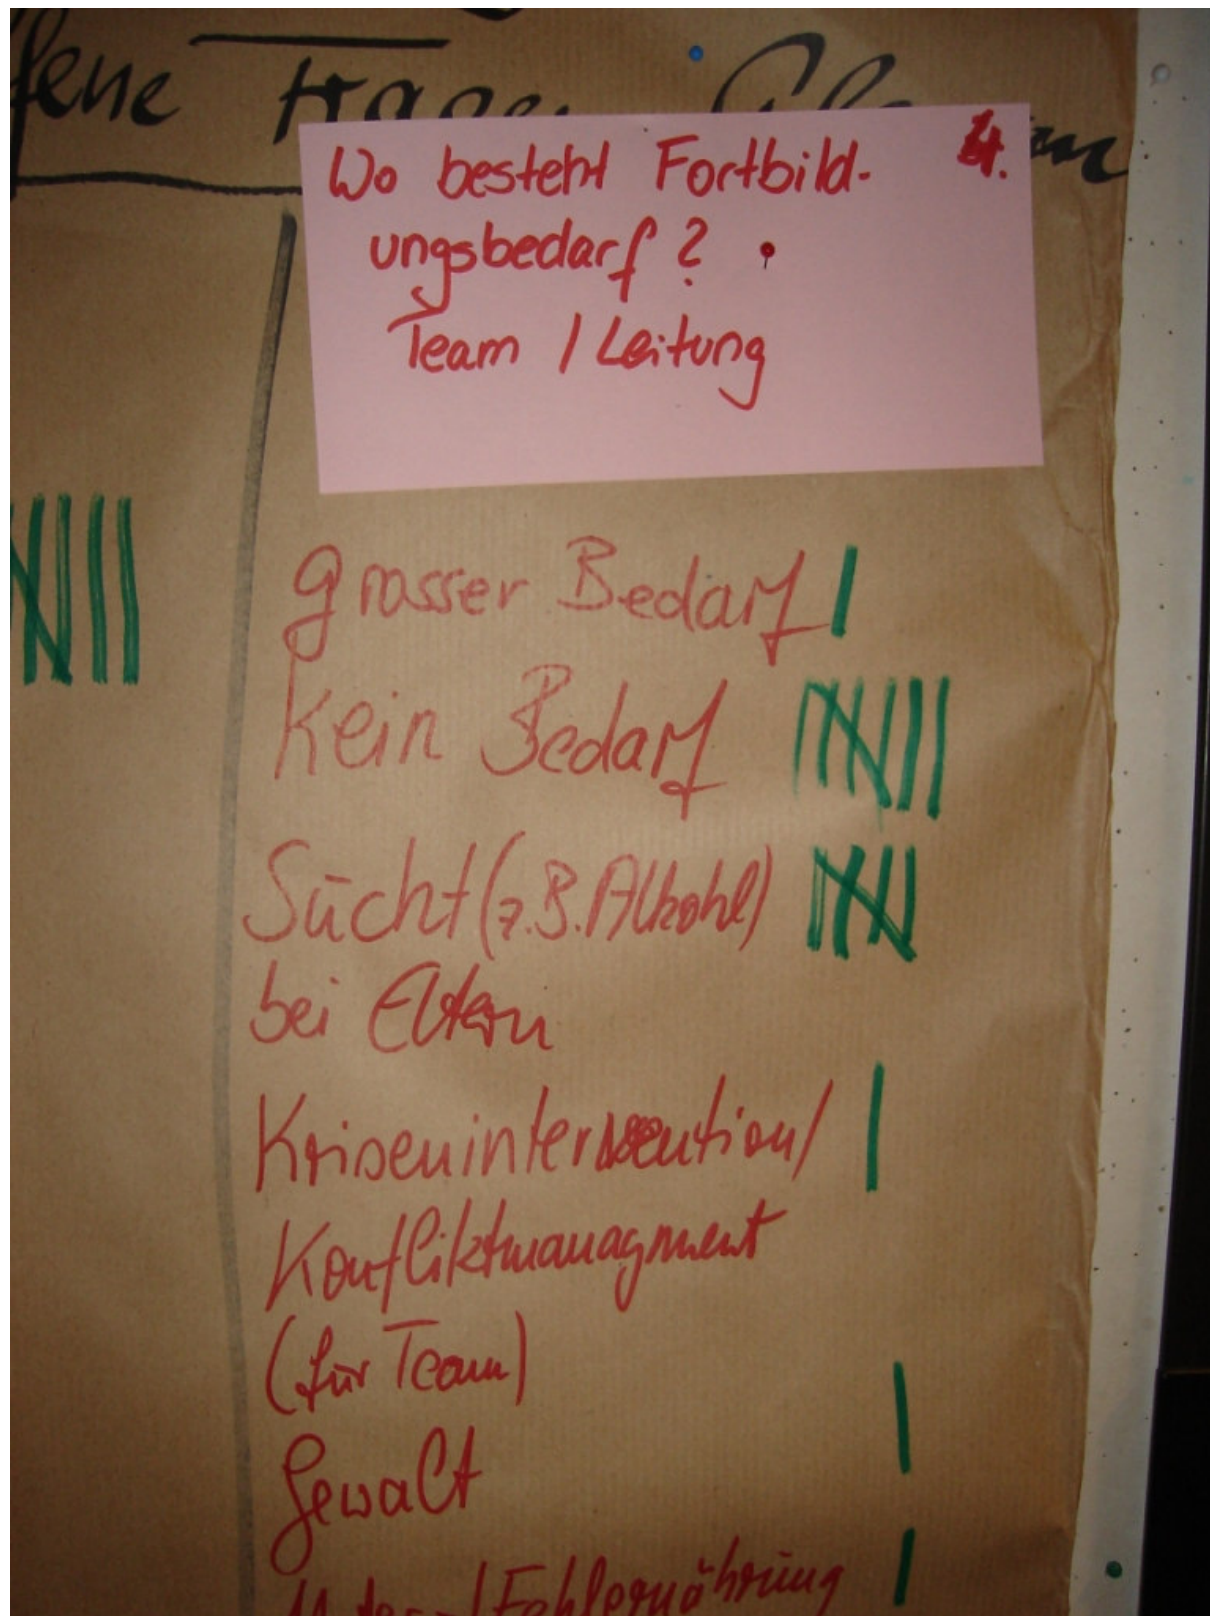 fene Fragen
Wo besteht Fortbild- 4.
ungsbedarf?
Team / Leitung
grosser Bedarf
Kein Bedarf
Sucht (z.B. Alkohl)
bei Eltern
Krisenintervention/
Konfliktmanagment
(für Team)
Gewalt
Unter-/Fehlernährung